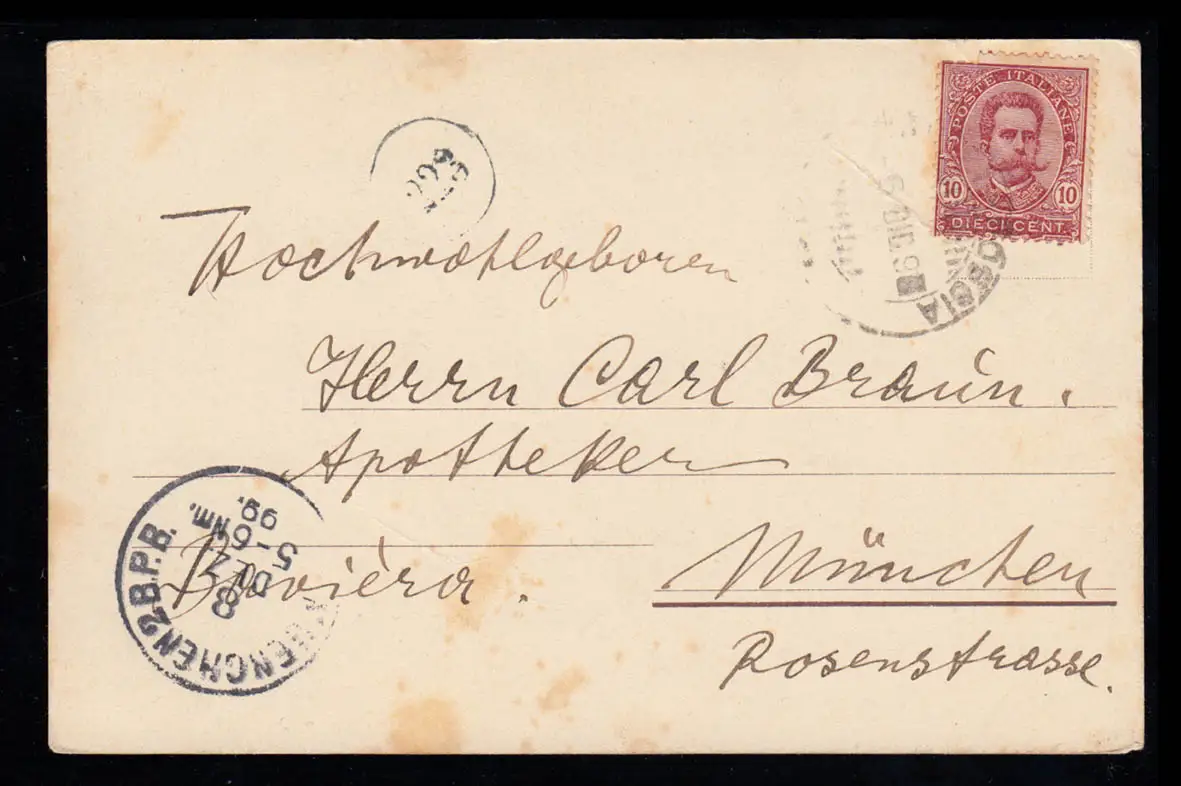 POSTE ITALIANE
10 10
DIECI CENT.
6 DIC 9
Hochwohlgeboren
Herrn Carl Braun.
Apotheker
Baviéra. München
Rosenstrasse.
MUENCHEN 2 B.P.B.
8
DEZ
5-6 Nm.
99.